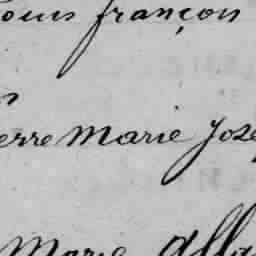 ouis françois
erre marie Joze
Marie Alla